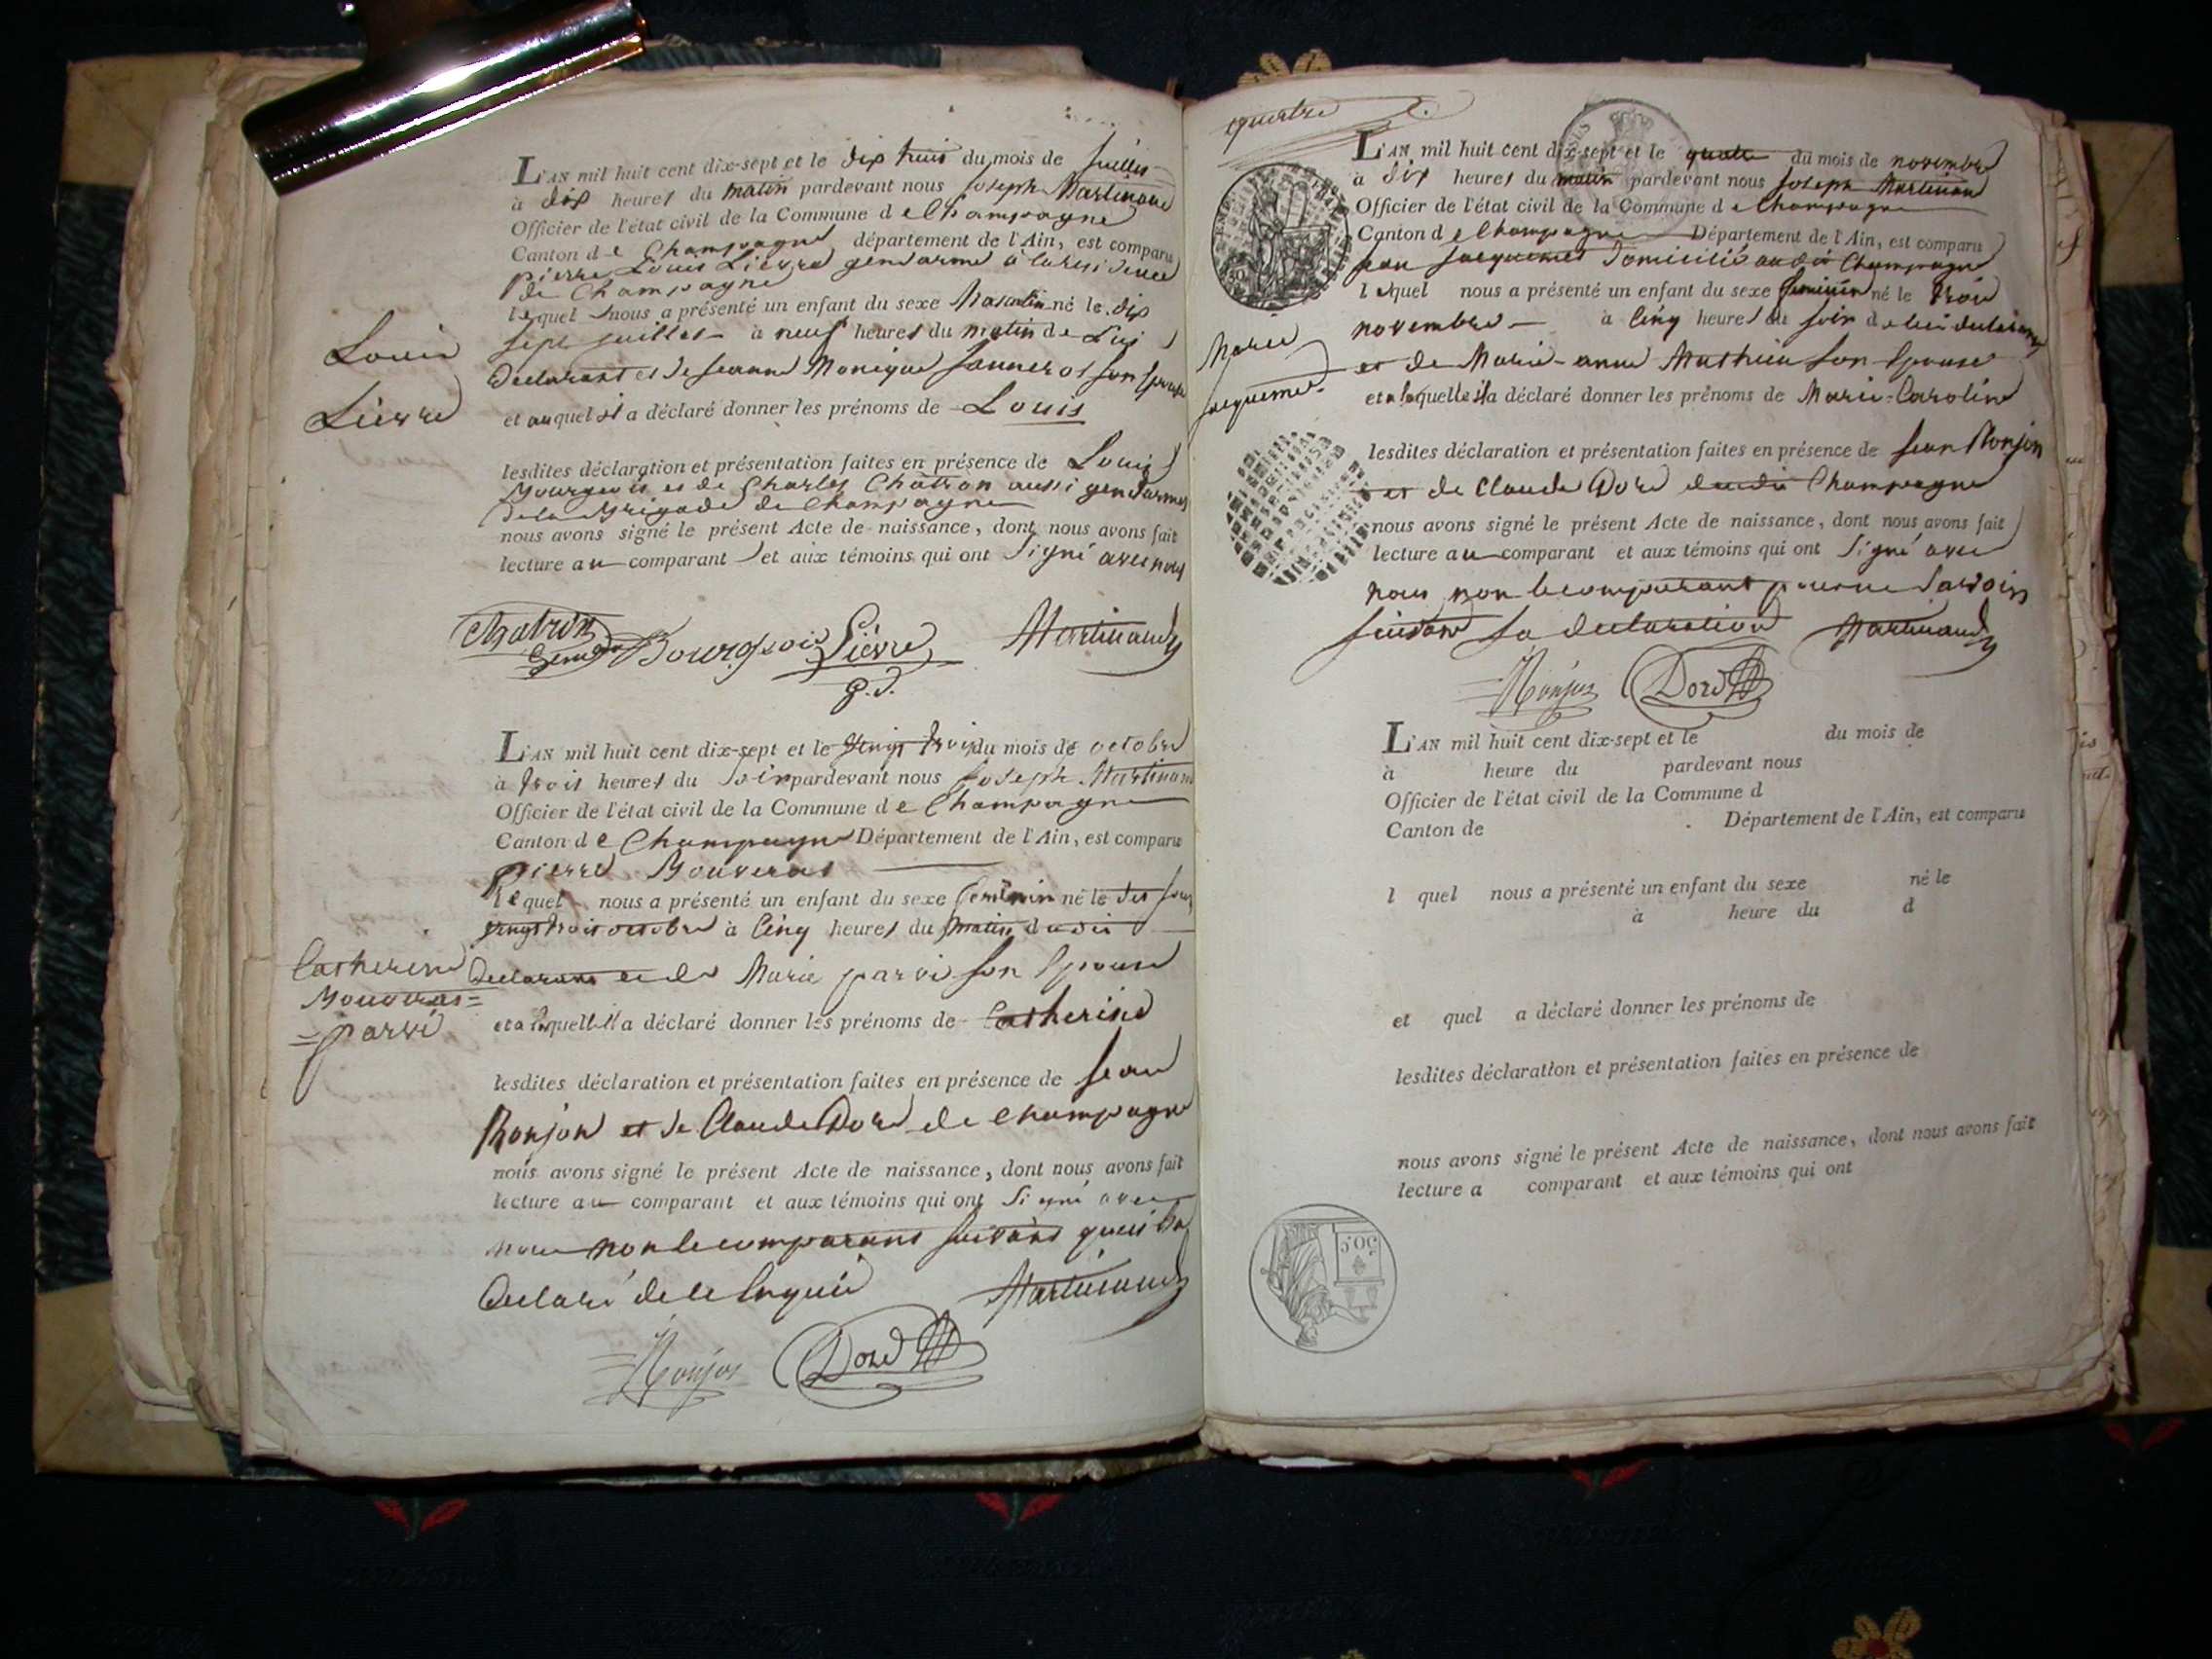 L'AN mil huit cent dix-sept et le dix huit du mois de Juillet
à dix heures du matin pardevant nous Joseph Martinand
Officier de l'état civil de la Commune de Champagne
Canton de Champagne département de l'Ain, est comparu
pierre Louis Lievre gendarme à la residence
de Champagne
lequel nous a présenté un enfant du sexe Masculin né le dix
sept juillet à neuf heures du matin de Lui
Louis
declarant et de jeanne Monique
son Epouse
Lievre
et auquel il a déclaré donner les prénoms de Louis
lesdites déclaration et présentation faites en présence de Louis
Bourgeois et de Charles Chatron aussi gendarmes
de la Brigade de Champagne
nous avons signé le présent Acte de naissance, dont nous avons fait
lecture au comparant et aux témoins qui ont signé avec nous
Chatron
Bourgeois Lièvre Martinand
g.d.
L'AN mil huit cent dix-sept et le vingt trois du mois de octobre
à trois heures du soir pardevant nous Joseph Martinand
Officier de l'état civil de la Commune de Champagne
Canton de Champagne Département de l'Ain, est comparu
Pierre Bouveras
lequel nous a présenté un enfant du sexe feminin né le
vingt trois octobre à Cinq heures du matin dudit
Catherine
declarant et de Marie parvi son Epouse
Bouveras
parvi
et a laquelle il a déclaré donner les prénoms de Catherine
lesdites déclaration et présentation faites en présence de Jean
Monjon et de Claude Dord de Champagne
nous avons signé le présent Acte de naissance, dont nous avons fait
lecture au comparant et aux témoins qui ont Signé avec
nous non le comparant suivant
declaré de
Martinand
Monjon Dord
quatre
L'AN mil huit cent dix-sept et le quatre du mois de novembre
à dix heures du matin pardevant nous Joseph Martinand
Officier de l'état civil de la Commune de Champagne
Canton de Champagne Département de l'Ain, est comparu
jean Jacquemet domicilié audit Champagne
lequel nous a présenté un enfant du sexe feminin né le trois
novembre à Cinq heures du soir de lui declarant
Marie
et de Marie-anne Mathieu son Epouse
Jacquemet
et a laquelle il a déclaré donner les prénoms de Marie-Caroline
lesdites déclaration et présentation faites en présence de jean Monjon
et de Claude Dord dudit Champagne
nous avons signé le présent Acte de naissance, dont nous avons fait
lecture au comparant et aux témoins qui ont Signé avec
nous non le comparant pour ne savoir
suivant sa declaration Martinand
Monjon Dord
L'AN mil huit cent dix-sept et le du mois de
à heure du pardevant nous
Officier de l'état civil de la Commune d
Canton de Département de l'Ain, est comparu
l quel nous a présenté un enfant du sexe né le
à heure du d
et quel a déclaré donner les prénoms de
lesdites déclaration et présentation faites en présence de
nous avons signé le présent Acte de naissance, dont nous avons fait
lecture a comparant et aux témoins qui ont
50C